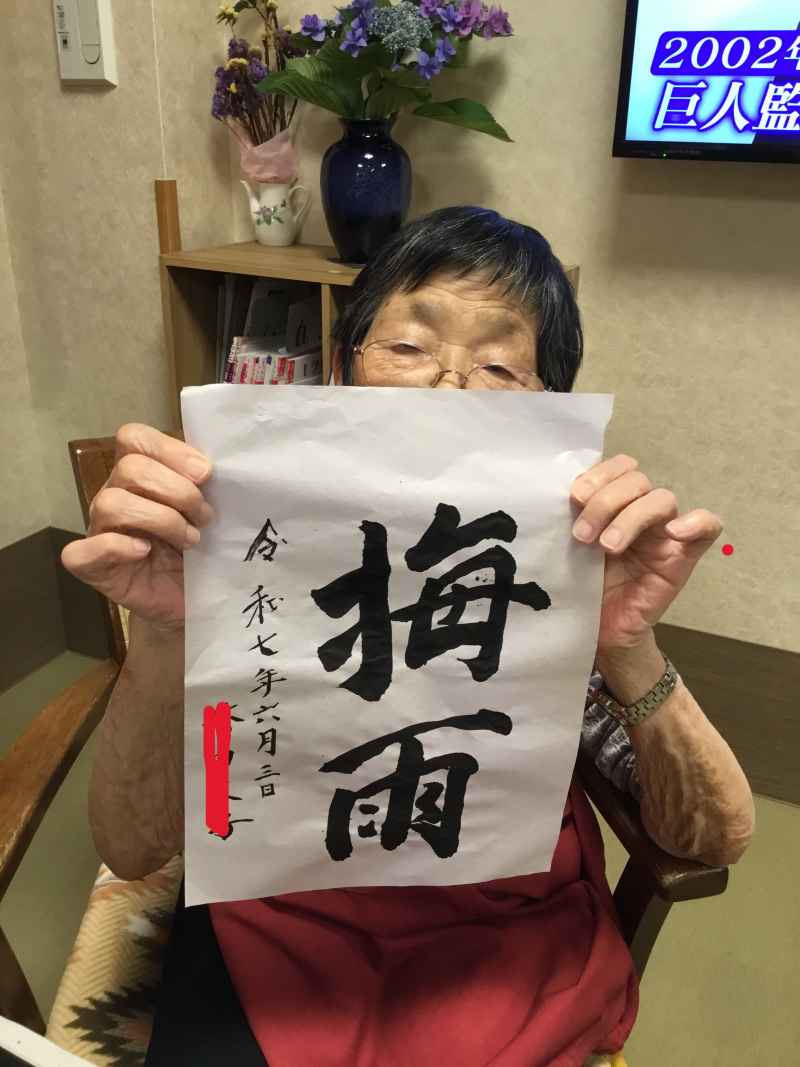 2002年
巨人監
梅雨
令和七年六月三日